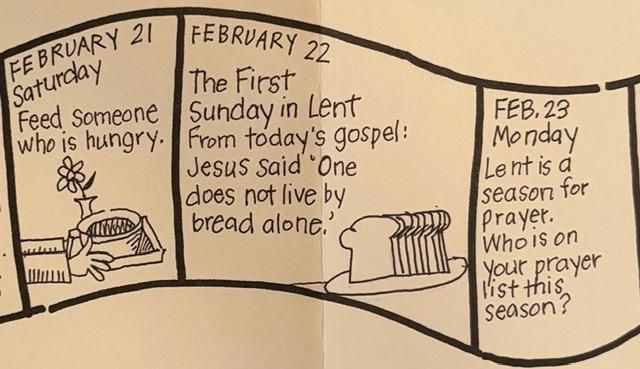 FEBRUARY 21
Saturday
Feed someone
who is hungry.
FEBRUARY 22
The First
Sunday in Lent
From today's gospel:
Jesus said 'One
does not live by
bread alone.'
FEB. 23
Monday
Lent is a
season for
prayer.
Who is on
your prayer
list this
season?